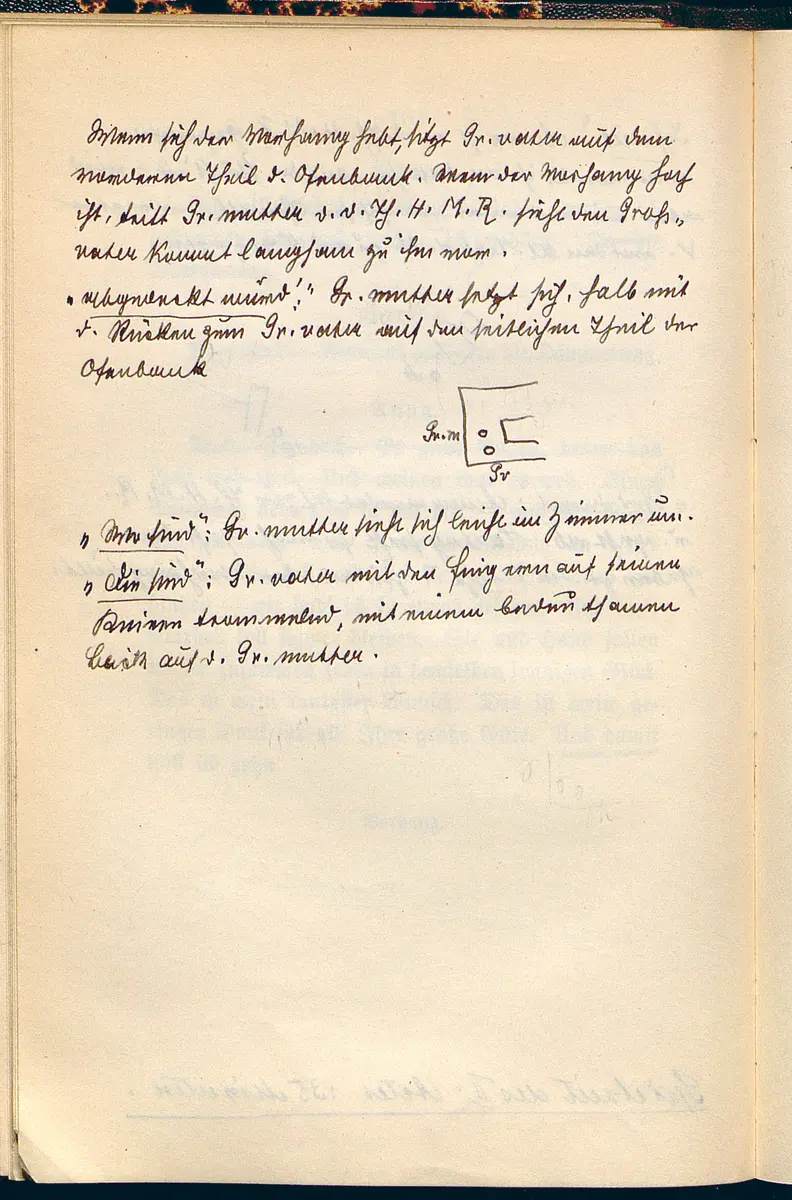 Wenn sich der Vorhang hebt, sitzt Gr. vater auf dem
vorderen Theil d. Ofenbank. Wenn der Vorhang hoch
ist, tritt Gr. mutter d. d. Th. H. M. R. sieht den Groß-
vater kommt langsam zu ihm vor.
„abgedeckt wurd!" Gr. mutter setzt sich, halb mit
d. Rücken zum Gr. vater auf den seitlichen Theil der
Ofenbank
Gr. m
Gr
„Wo sind": Gr. mutter sieht sich leicht im Zimmer um.
„Die sind": Gr. vater mit den Fingern auf seinen
Knieen trommelnd, mit einem bedeutsamen
Blick auf d. Gr. mutter.